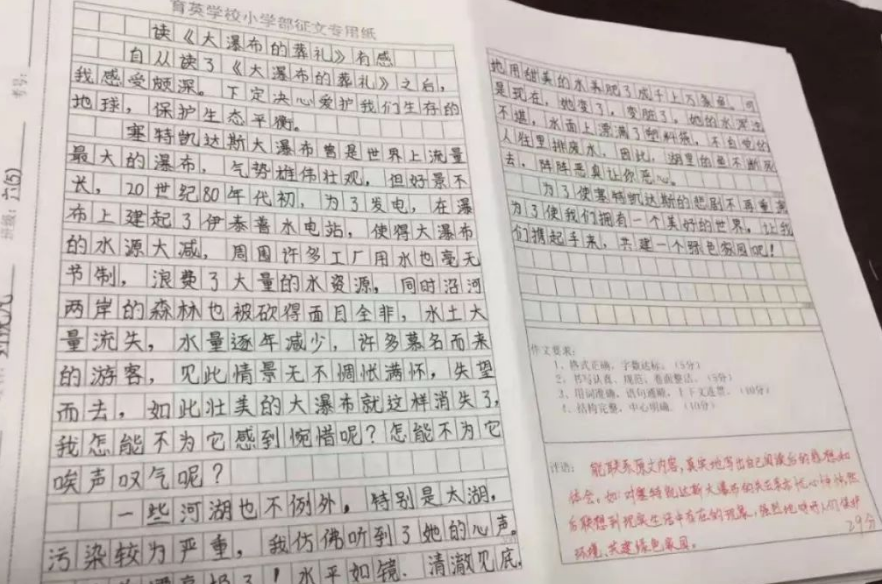 育英学校小学部征文专用纸
读《大瀑布的葬礼》有感
自从读了《大瀑布的葬礼》之后，
我感受颇深。下定决心爱护我们生存的
地球，保护生态平衡。
塞特凯达斯大瀑布曾是世界上流量
最大的瀑布，气势雄伟壮观，但好景不
长，20世纪80年代初，为了发电，在瀑
布上建起了伊泰普水电站，使得大瀑布
的水源大减，周围许多工厂用水也毫无
节制，浪费了大量的水资源，同时沿河
两岸的森林也被砍得面目全非，水土大
量流失，水量逐年减少，许多慕名而来
的游客，见此情景无不惆怅满怀，失望
而去，如此壮美的大瀑布就这样消失了，
我怎能不为它感到惋惜呢？怎能不为它
唉声叹气呢？
一些河湖也不例外。特别是太湖，
污染较为严重，我仿佛听到了她的心声。
了！水平如镜、清澈见底，
地用甜美的水养肥了成千上万条鱼。可
是现在，她变了，变脏了，她的水浑浊
不堪，水面上漂满了塑料袋，不自觉的
人往里排废水，因此，湖里的鱼不断死
去，阵阵恶臭让你恶心。
为了使塞特凯达斯的悲剧不再重演
为了使我们拥有一个美好的世界。让我
们携起手来，共建一个绿色家园吧！
作文要求：
1、格式正确，字数达标。（5分）
2、书写认真、规范，卷面整洁。（5分）
3、用词准确，语句通顺，上下文连贯。（10分）
4、结构完整，中心明确。（10分）
评语：能联系原文内容，真实地写出自己阅读后的感想和
体会，如对塞特凯达斯大瀑布的
后联想到现实生活中存在的现象，强烈地呼吁人们保护
环境、共建绿色家园。
29分
班级：六(5)